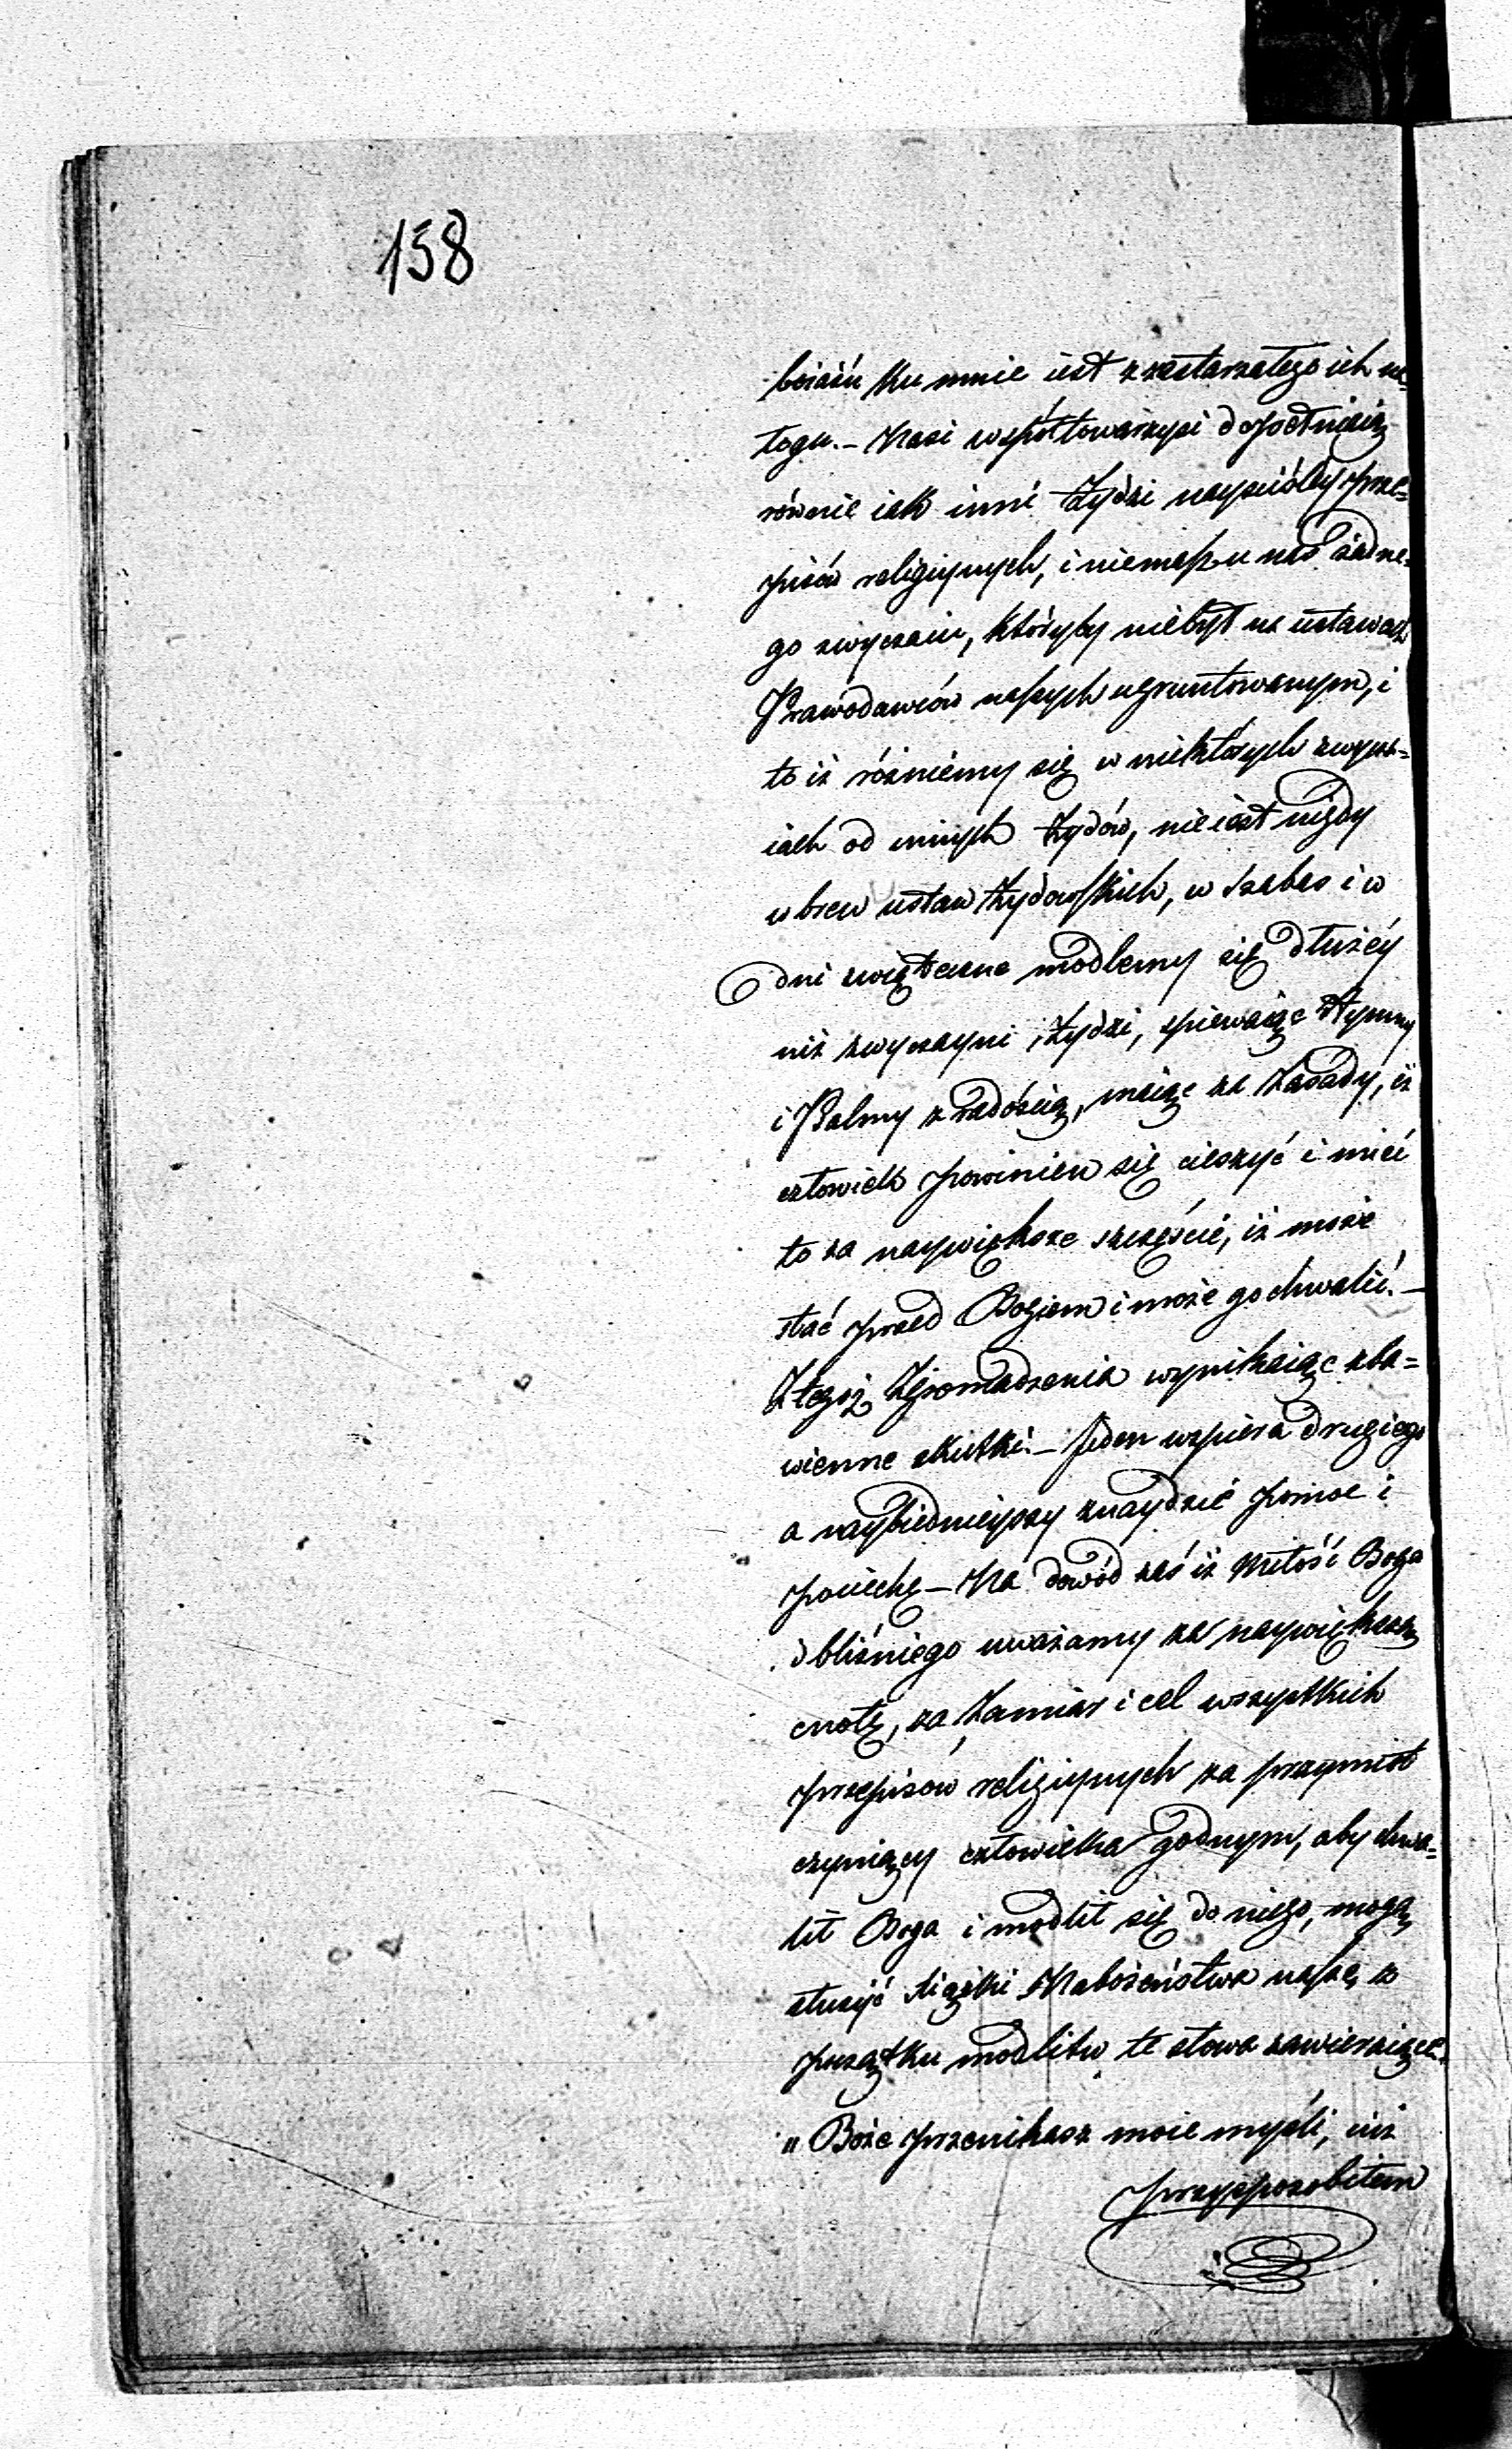 158
ku mnie iest z zastarzałego ich na=
łogu. – Nasi współtowarzysi dopełniaią
równie iak inni Żydzi nayściśley prze=
pisów religiynych, i niemasz u nas żadne=
go zwyczaiu, któryby niebył na ustawach
Prawodawców naszych ugruntowanym, i
to iż różniemy się w niektórych zwycza=
iach od innych Żydów, nie iest nigdy
wbrew ustaw Żydowskich, w Szabas i w
dni świąteczne modlemy się dłużéy
niż zwyczayni Żydzi, spiewaiąc Hymny
i Psalmy z radością, maiąc za Zasady, iż
człowiek powinien się cieszyć i mieć
to za naywiększe szczęście, iż może
stać przed Bogiem i może go chwalić. –
Z tegoż Zgromadzenia wynikaią zba=
wienne skutki. – Jeden wspiera drugiego
a naybiednieyszy znaydzie pomoc i
pociechę – Na dowód zaś iż Miłość Boga
i bliźniego uważamy za naywiększą
cnotę, za Zamiar i cel wszystkich
przepisów religiynych za przymiot
czyniący człowieka godnym, aby chwa=
lił Boga i modlił się do niego, mogą
służyć Książki Nabożeństwa naszę z
początku modlitw te słowa zawieraiące.
„ Boże przenikasz moie myśli, iuż
przysposobiłem